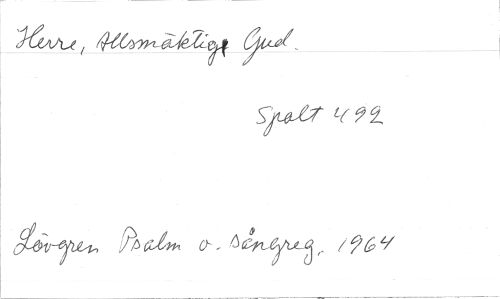 Herre, Allsmäktige Gud.
Spalt 492
Lövgren Psalm o. sångreg. 1964